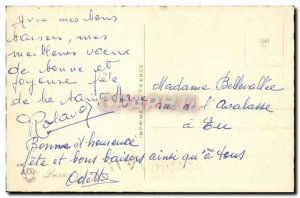 Avec mes bons
baisers, mes
meilleurs voeux
de bonne et
joyeuse fête
de la Sainte Anne
Roland
Bonne et heureuse
fête et bons baisers ainsi qu'à tous
Odette
Madame Bellevallée
rue de l'Avalasse
à Eu
IMPRIMÉ EN FRANCE
Luxe